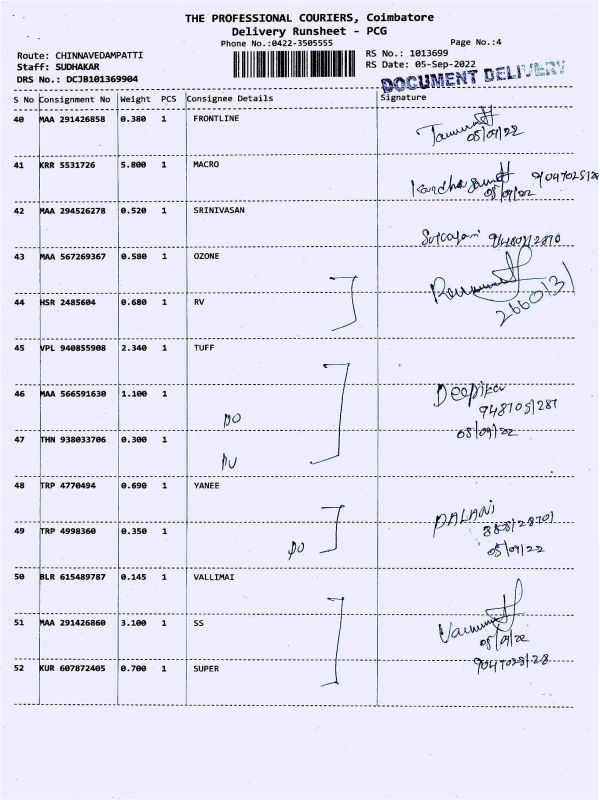 THE PROFESSIONAL COURIERS, Coimbatore
Delivery Runsheet - PCG
Phone No.:0422-3505555
Page No.:4
Route: CHINNAVEDAMPATTI
RS No.: 1013699
Staff: SUDHAKAR
RS Date: 05-Sep-2022
DRS No.: DCJB101369904
DOCUMENT DELIVERY
S No Consignment No Weight PCS Consignee Details Signature
40 MAA 291426858 0.380 1 FRONTLINE
05/09/22
41 KRR 5531726 5.800 1 MACRO
05/09/22
42 MAA 294526278 0.520 1 SRINIVASAN
43 MAA 567269367 0.580 1 OZONE
44 HSR 2485604 0.680 1 RV
2660131
45 VPL 940855908 2.340 1 TUFF
46 MAA 566591630 1.100 1 Deepika
DO
05/09/22
47 THN 938033706 0.300 1
DO
48 TRP 4770494 0.690 1 YANEE
PALANI
49 TRP 4998360 0.350 1
DO 05/09/22
50 BLR 615489787 0.145 1 VALLIMAI
51 MAA 291426860 3.100 1 SS
05/09/22
52 KUR 607872405 0.700 1 SUPER